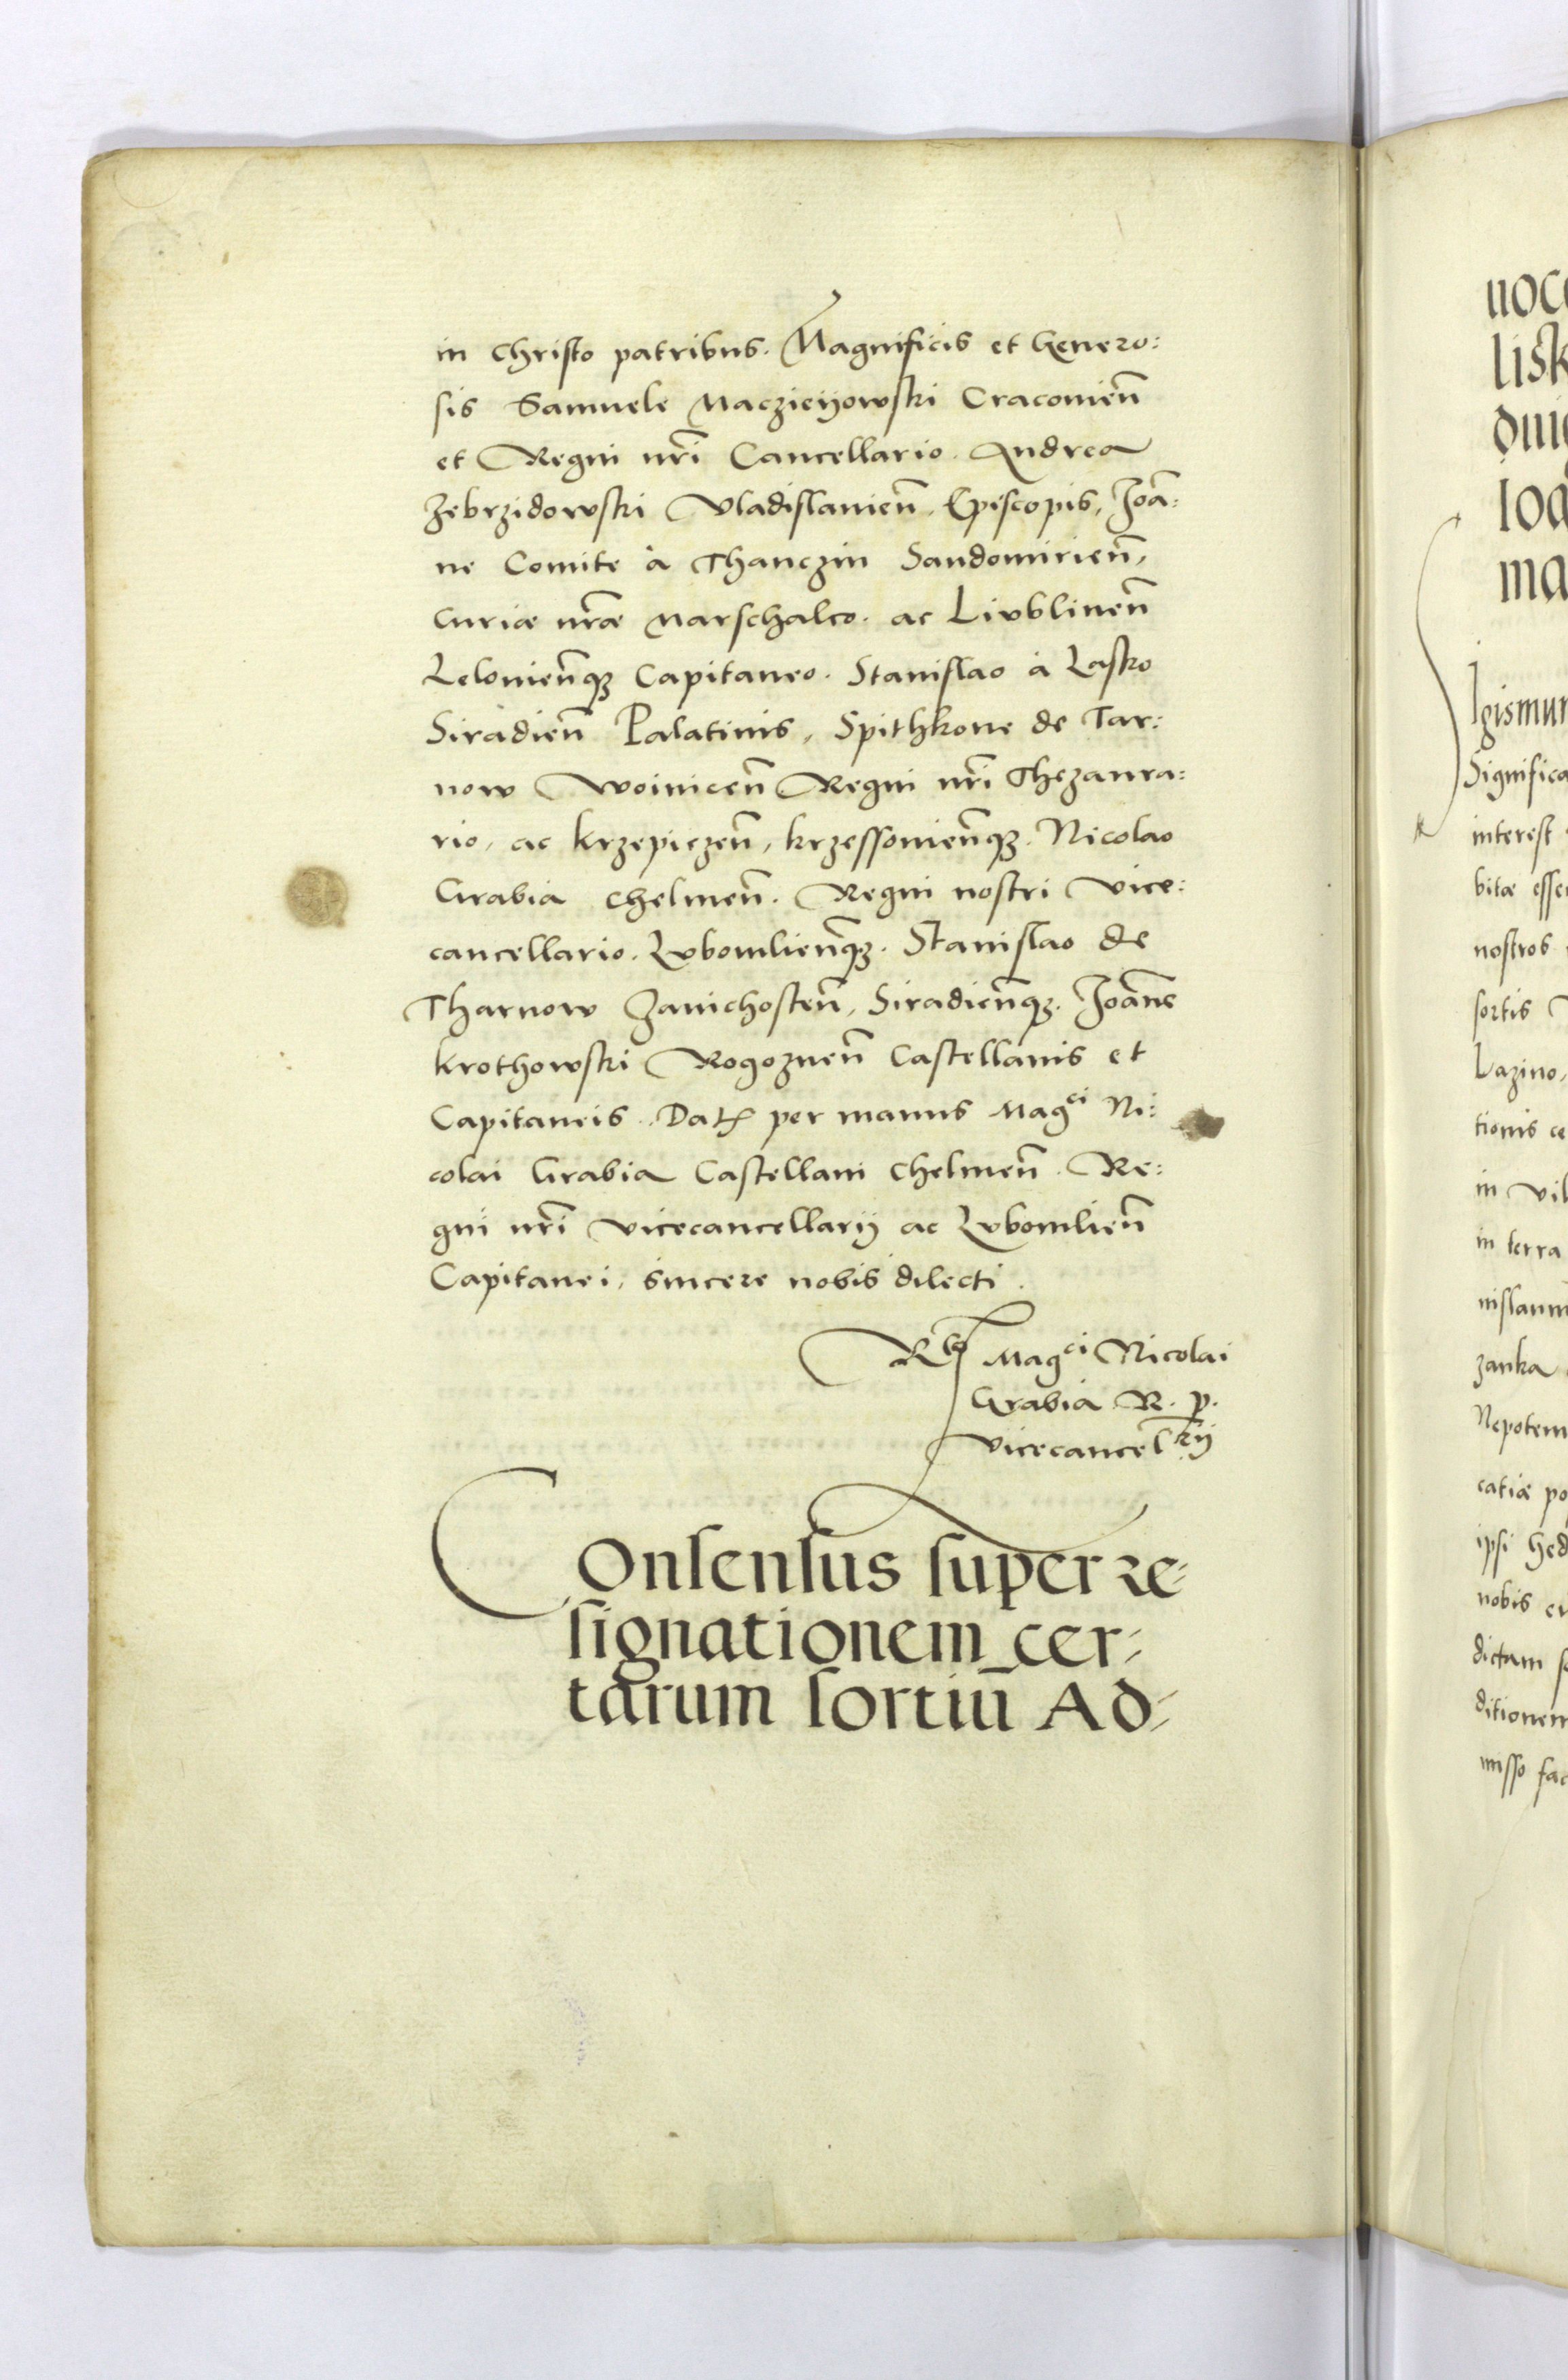 in Christo patribus. Magnificis et Genero:
sis Samuele Maczieyowski Cracovien̄
et Regni nr̄i Cancellario. Andrea
Zebrzidowski Vladislavien̄. Episcopis, Joā:
ne Comite à Thanczin Sandomirien̄,
Curiæ nr̄æ Marschalco. ac Liublinen̄
Lelovien̄qȝ Capitaneo. Stanislao à Lasko
Siradien̄ Palatinis, Spithkone de Tar:
now Woinicen̄ Regni nr̄i Thezaura:
rio, ac krzepiczen̄, krzessovien̄qȝ. Nicolao
Grabia Chelmen̄. Regni nostri Vice:
cancellario. Lubomlien̄qȝ. Stanislao de
Tharnow Zavichosten̄, Siradien̄qȝ. Joān̄e
krothowski Rogoznen̄ Castellanis et
Capitaneis. Datꝭ per manus Mag^ci Ni:
colai Grabia Castellani Chelmen̄. Re:
gni nr̄i vicecancellarij ac Lubomlien̄
Capitanei, sincere nobis dilecti.
R^tio Mag^ci Nicolai
Grabia R. P.
Vicecancel^rij
Consensus super re-
signationem cer-
tarum sortiū Ad-
noc
lisk
dui
loa
ma
Igismun
Significa
interest
bitæ esse
nostros
sortis
Lazino,
tionis ce
in vil
in terra
nislaum
zanka
Nepotem
catiæ po
ipsi hed
nobis
dictam s
ditionem
misso fac